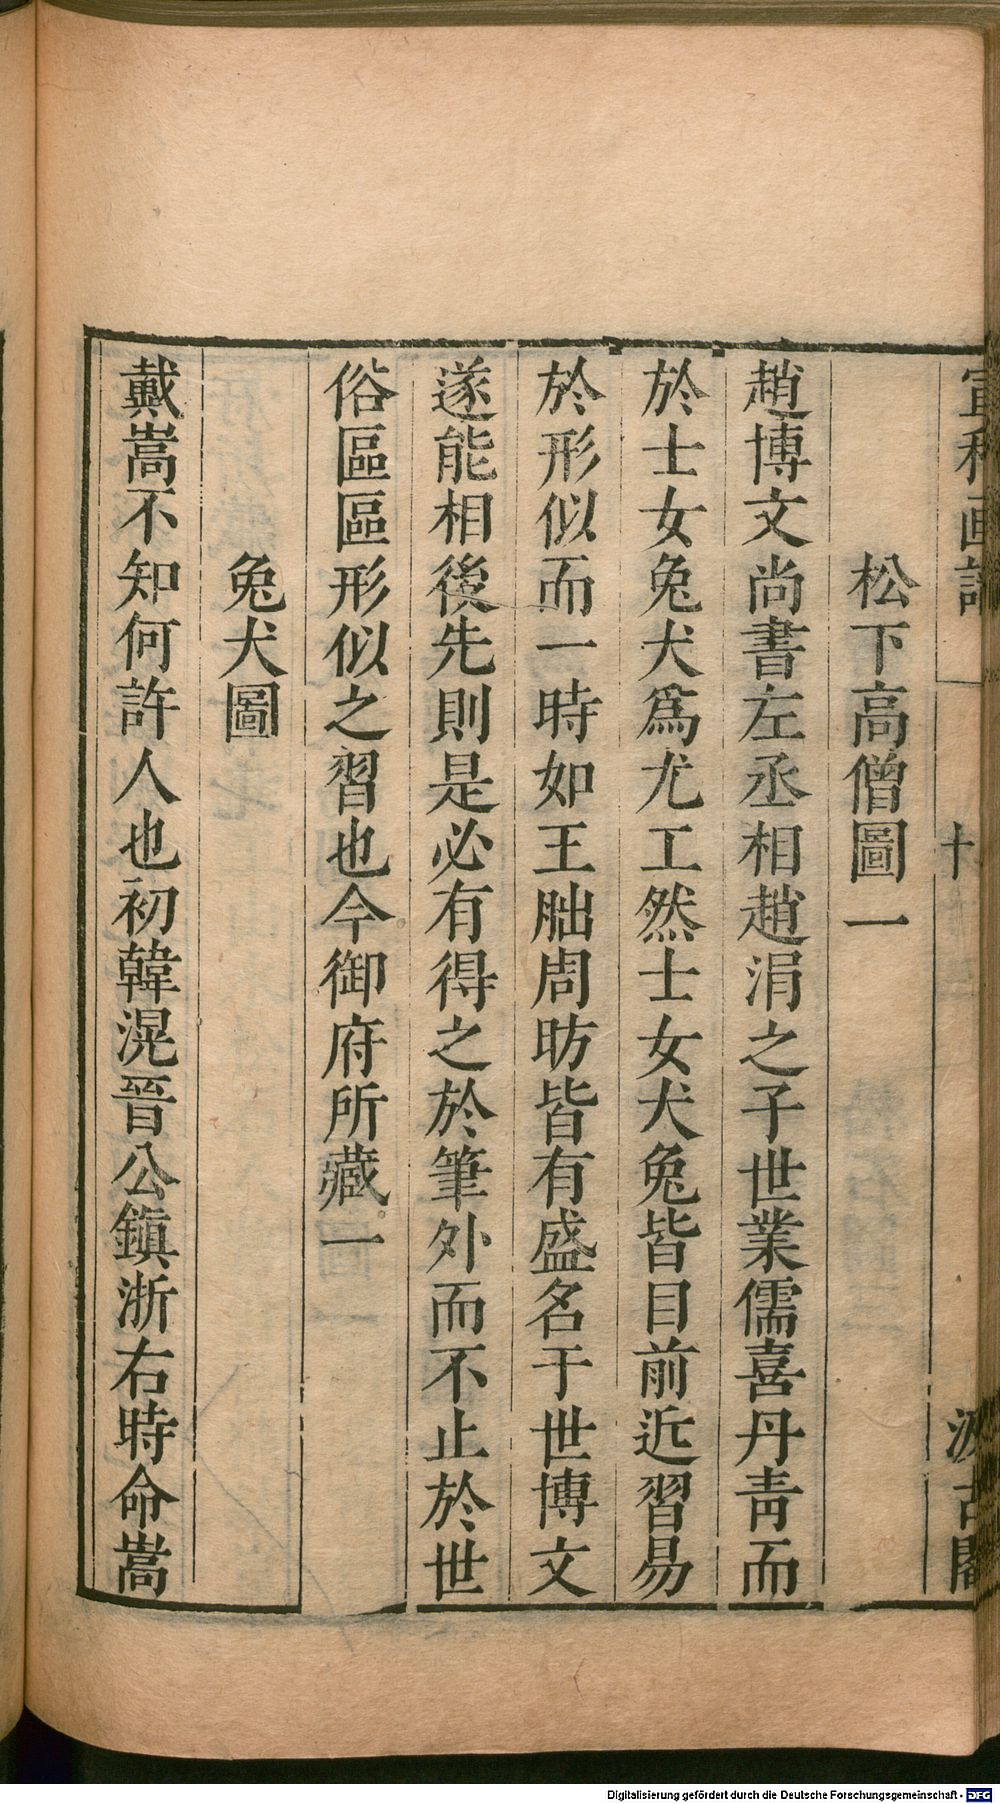 宣和画譜 十 汲古閣
松下高僧圖一
趙博文尚書左丞相趙涓之子世業儒喜丹青而
於士女兔犬爲尤工然士女犬兔皆目前近習易
於形似而一時如王朏周昉皆有盛名于世博文
遂能相後先則是必有得之於筆外而不止於世
俗區區形似之習也今御府所藏一
兔犬圖
戴嵩不知何許人也初韓滉晉公鎭浙右時命嵩
Digitalisierung gefördert durch die Deutsche Forschungsgemeinschaft - DFG